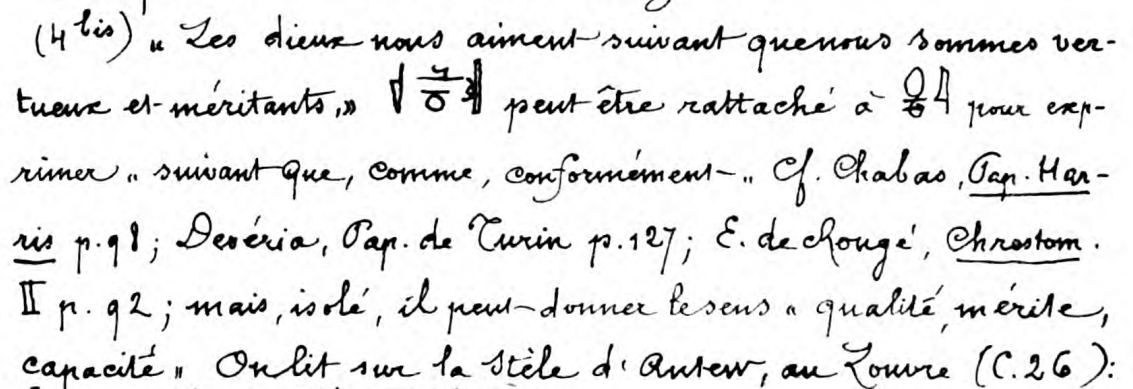 (4 bis) « Les dieux nous aiment suivant que nous sommes ver-
tueux et méritants, » peut être rattaché à pour exp-
rimer « suivant que, comme, conformément ». Cf. Chabas, Pap. Har-
ris p. 98; Devéria, Pap. de Turin p. 127; E. de Rougé, Chrestom.
II p. 92; mais, isolé, il peut donner le sens « qualité, mérite,
capacité » On lit sur la Stèle d'Antew, au Louvre (C.26):